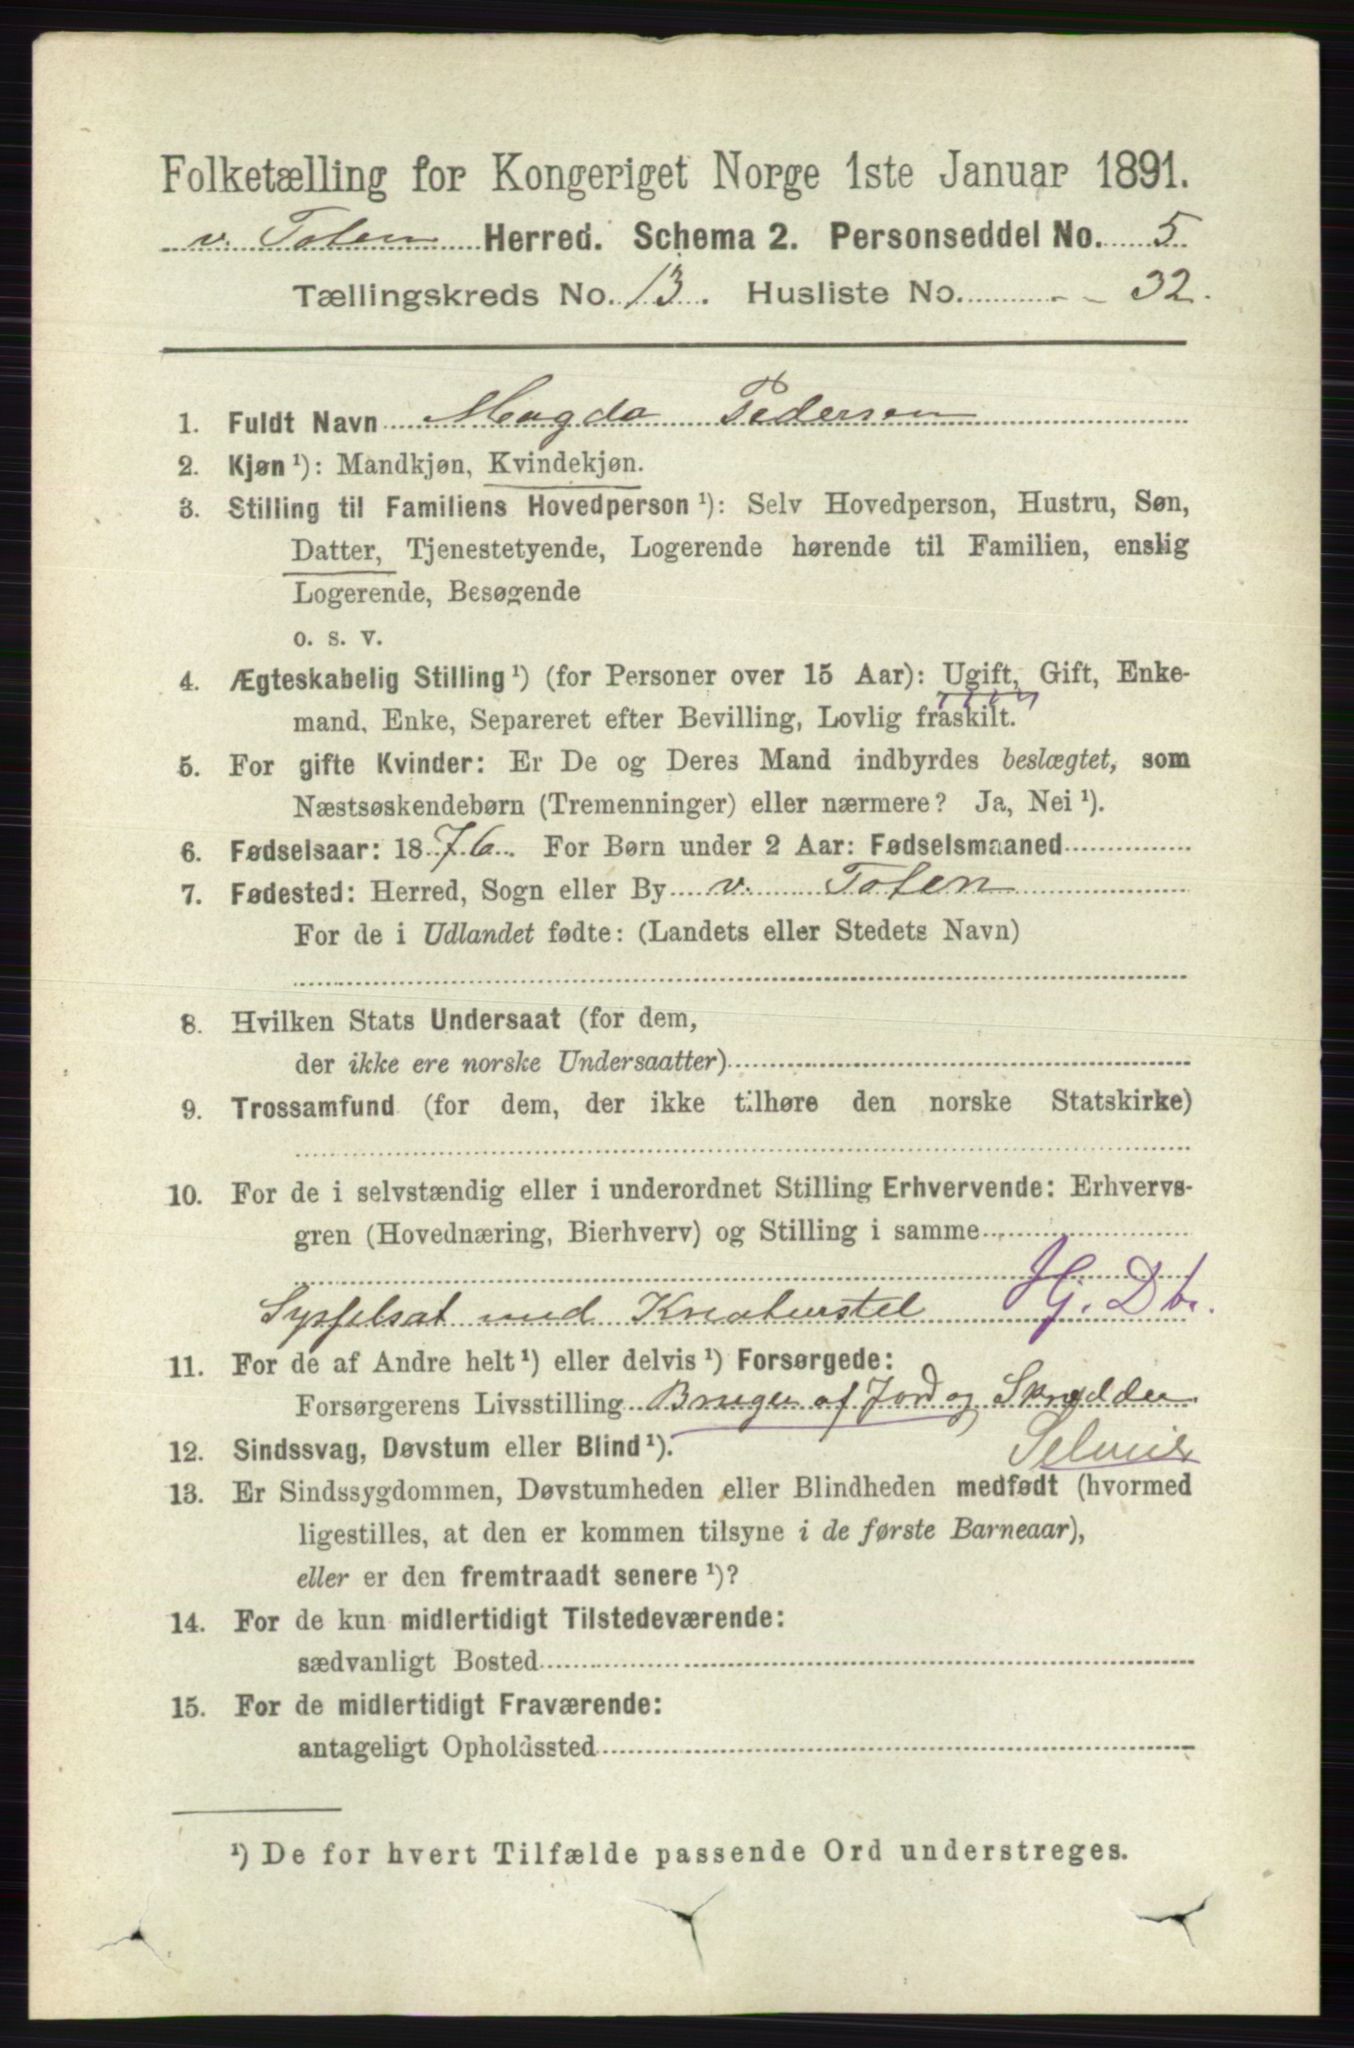 Folketælling for Kongeriget Norge 1ste Januar 1891.
v. Toten Herred. Schema 2. Personseddel No. 5
Tællingskreds No. 13. Husliste No. 32.
1. Fuldt Navn Magda Pedersen
2. Kjøn ¹): Mandkjøn, Kvindekjøn.
3. Stilling til Familiens Hovedperson ¹): Selv Hovedperson, Hustru, Søn,
Datter, Tjenestetyende, Logerende hørende til Familien, enslig
Logerende, Besøgende
o. s. v.
4. Ægteskabelig Stilling ¹) (for Personer over 15 Aar): Ugift, Gift, Enke-
mand, Enke, Separeret efter Bevilling, Lovlig fraskilt.
5. For gifte Kvinder: Er De og Deres Mand indbyrdes beslægtet, som
Næstsøskendebørn (Tremenninger) eller nærmere? Ja, Nei ¹).
6. Fødselsaar: 1876. For Børn under 2 Aar: Fødselsmaaned
7. Fødested: Herred, Sogn eller By v. Toten
For de i Udlandet fødte: (Landets eller Stedets Navn)
8. Hvilken Stats Undersaat (for dem,
der ikke ere norske Undersaatter)
9. Trossamfund (for dem, der ikke tilhøre den norske Statskirke)
10. For de i selvstændig eller i underordnet Stilling Erhvervende: Erhvervs-
gren (Hovednæring, Bierhverv) og Stilling i samme
Hj. Dtr.
Sysselsat med Kreaturstel
11. For de af Andre helt ¹) eller delvis ¹) Forsørgede:
Forsørgerens Livsstilling Bruger af Jord og Skrædder
12. Sindssvag, Døvstum eller Blind ¹). Selveier
13. Er Sindssygdommen, Døvstumheden eller Blindheden medfødt (hvormed
ligestilles, at den er kommen tilsyne i de første Barneaar),
eller er den fremtraadt senere ¹)?
14. For de kun midlertidigt Tilstedeværende:
sædvanligt Bosted
15. For de midlertidigt Fraværende:
antageligt Opholdssted
¹) De for hvert Tilfælde passende Ord understreges.